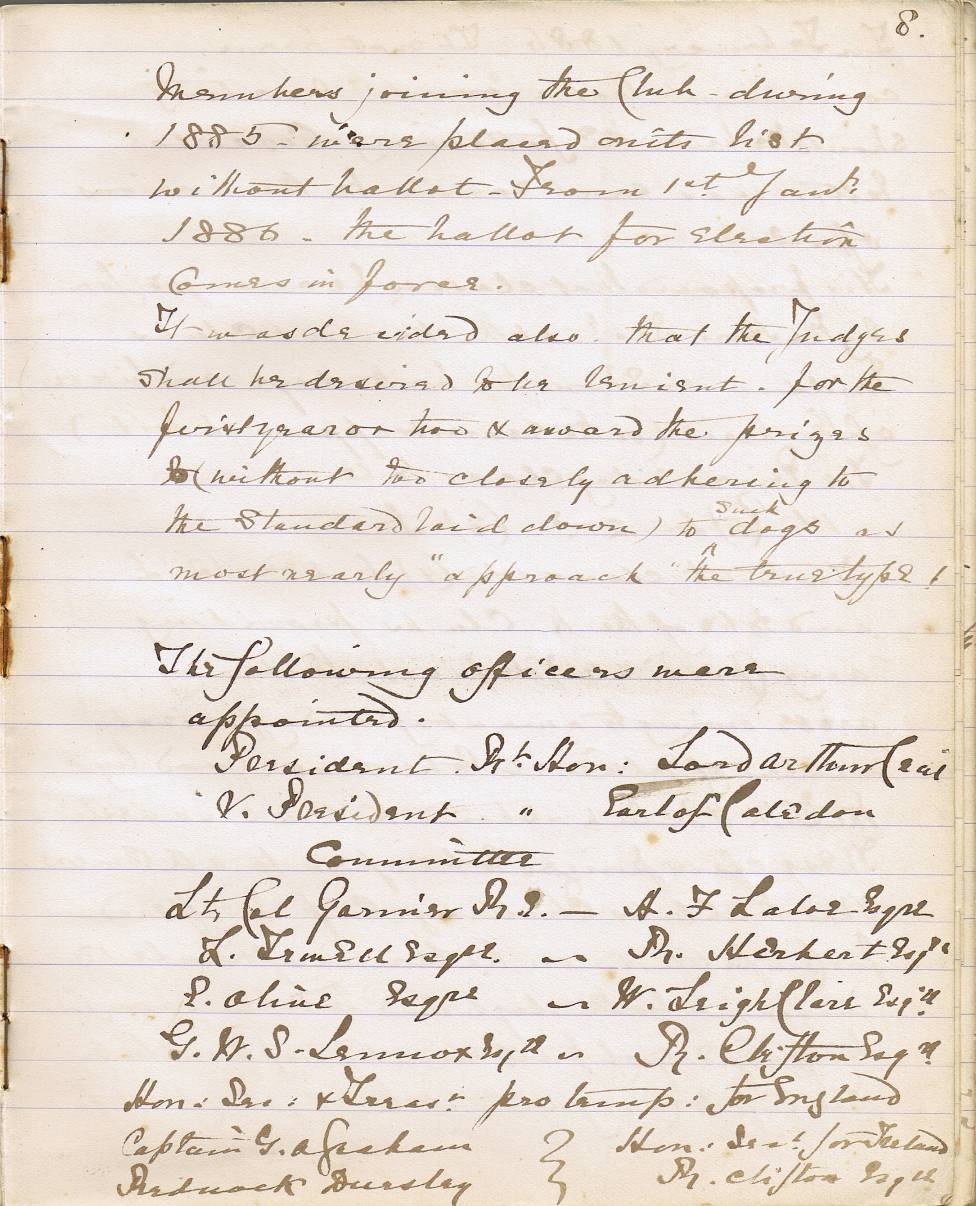 8.
Members joining the Club - during
1885 - were placed on its list
without ballot - From 1st Jany.
1886 - the ballot for election
comes in force.
It was decided also that the Judges
shall be desired to be lenient - for the
first year or two & award the prizes
(without too closely adhering to
the Standard laid down) to such dogs as
most nearly "approach" the true type!
The following officers were
appointed.
President Rt Hon: Lord Arthur Cecil
V. President " Earl of Caledon
Committee
Lt. Col Garnier R.E. — A. F Laloe Esqre
L. Irwell Esqre. — R. Herbert Esqre
E. Oline Esqre — W. Leigh Clare Esqre
G. W. S. Lennox Esqre — R. Clifton Esqre
Hon: Sec: & Treasr pro temp: for England
Captain G. A Graham } Hon: Sect. for Ireland
Rednock Dursley } R. Clifton Esqre